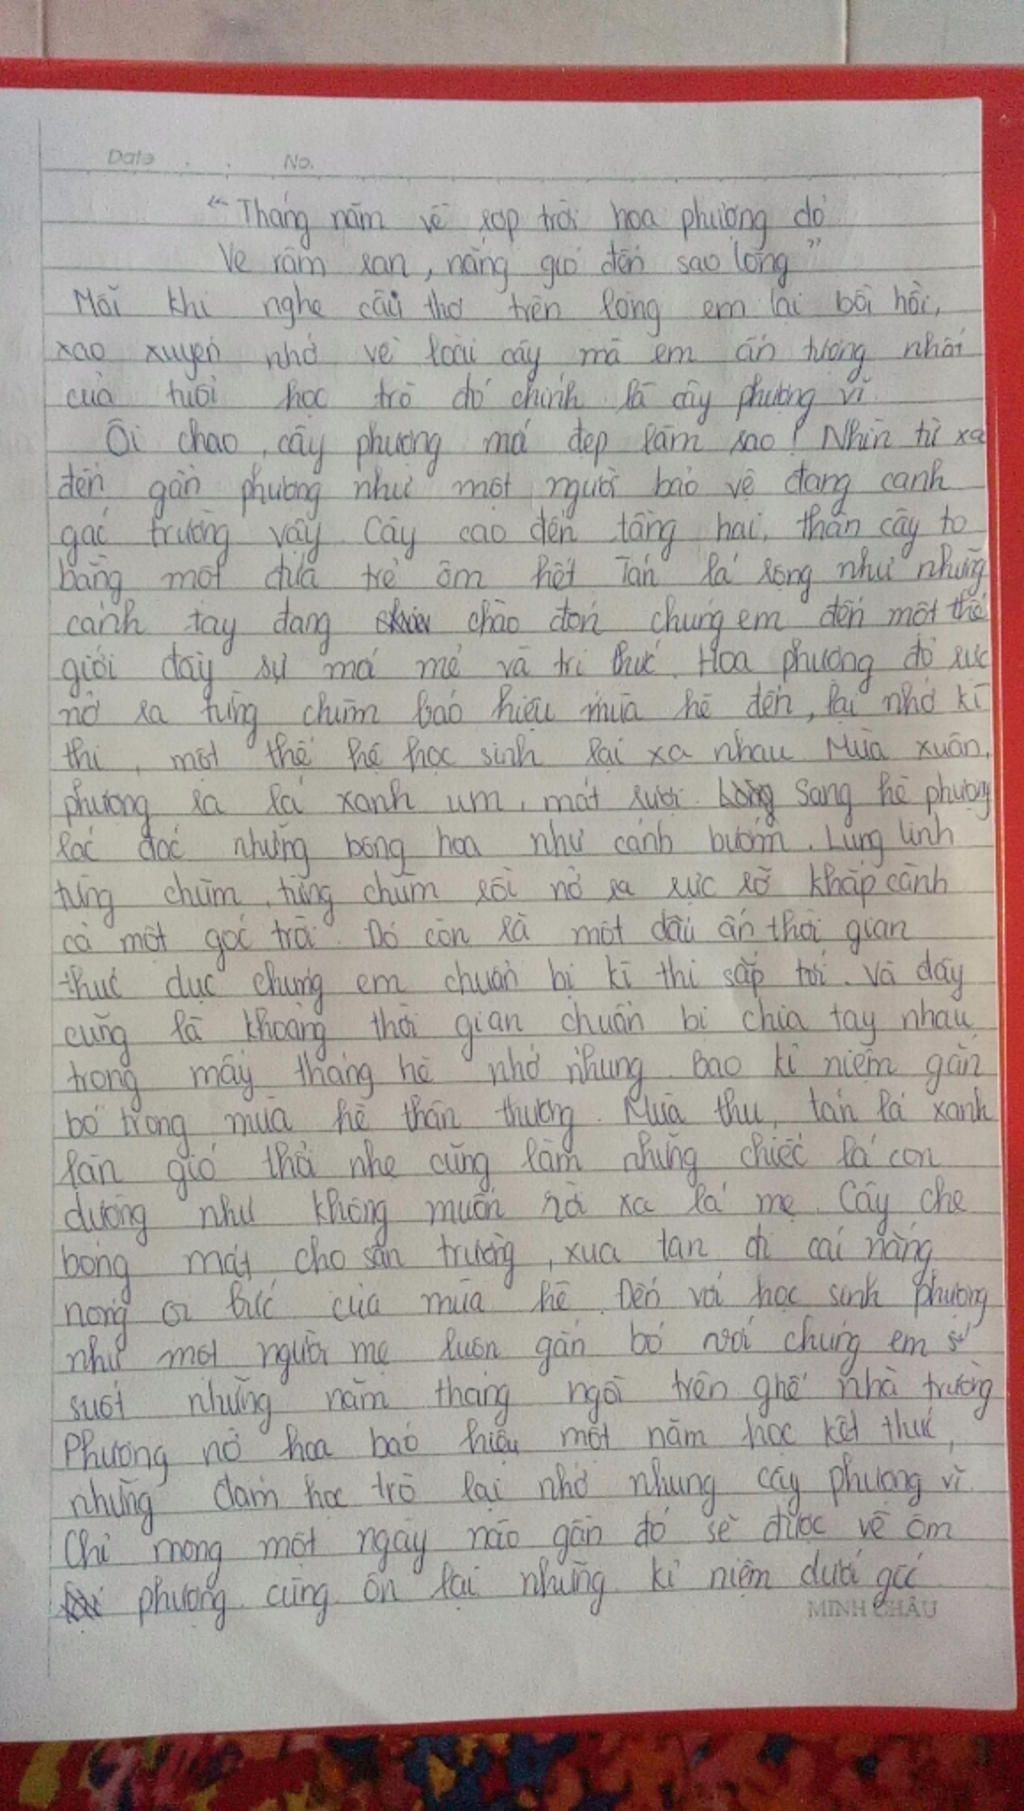 Date . . No.
"Tháng năm về rợp trời hoa phượng đỏ
Ve râm ran, nắng gió đến sao lòng"
Mỗi khi nghe câu thơ trên lòng em lại bồi hồi,
xao xuyến nhớ về loài cây mà em ấn tượng nhất
của tuổi học trò đó chính là cây phượng vĩ.
Ôi chao, cây phượng mới đẹp làm sao! Nhìn từ xa
đến gần phượng như một người bảo vệ đang canh
gác trường vậy. Cây cao đến tầng hai, thân cây to
bằng một đứa trẻ ôm hết. Tán lá rộng như những
cánh tay đang chào đón chúng em đến một thế
giới đầy sự mới mẻ và tri thức. Hoa phượng đỏ rực
nở ra từng chùm báo hiệu mùa hè đến, lại nhớ kì
thi, một thế hệ học sinh lại xa nhau. Mùa xuân,
phượng ra lá xanh um, mát rượi. Sang hè phượng
lác đác những bông hoa như cánh bướm. Lung linh
từng chùm, từng chùm rồi nở ra rực rỡ khắp cành
cả một góc trời. Đó còn là một dấu ấn thời gian
thúc dục chúng em chuẩn bị kì thi sắp tới. Và đây
cũng là khoảng thời gian chuẩn bị chia tay nhau
trong mấy tháng hè nhớ nhung. Bao kỉ niệm gắn
bó trong mùa hè thân thương. Mùa thu, tán lá xanh
làn gió thổi nhẹ cũng làm những chiếc lá con
dường như không muốn rời xa lá mẹ. Cây che
bóng mát cho sân trường, xua tan đi cái nắng
nóng oi bức của mùa hè. Đến với học sinh phượng
như một người mẹ luôn gắn bó với chúng em
suốt những năm tháng ngồi trên ghế nhà trường
Phượng nở hoa báo hiệu một năm học kết thúc,
những đám học trò lại nhớ nhung cây phượng vĩ.
Chỉ mong một ngày nào gần đó sẽ được về ôm
phượng cùng ôn lại những kỉ niệm dưới gốc
MINH CHÂU